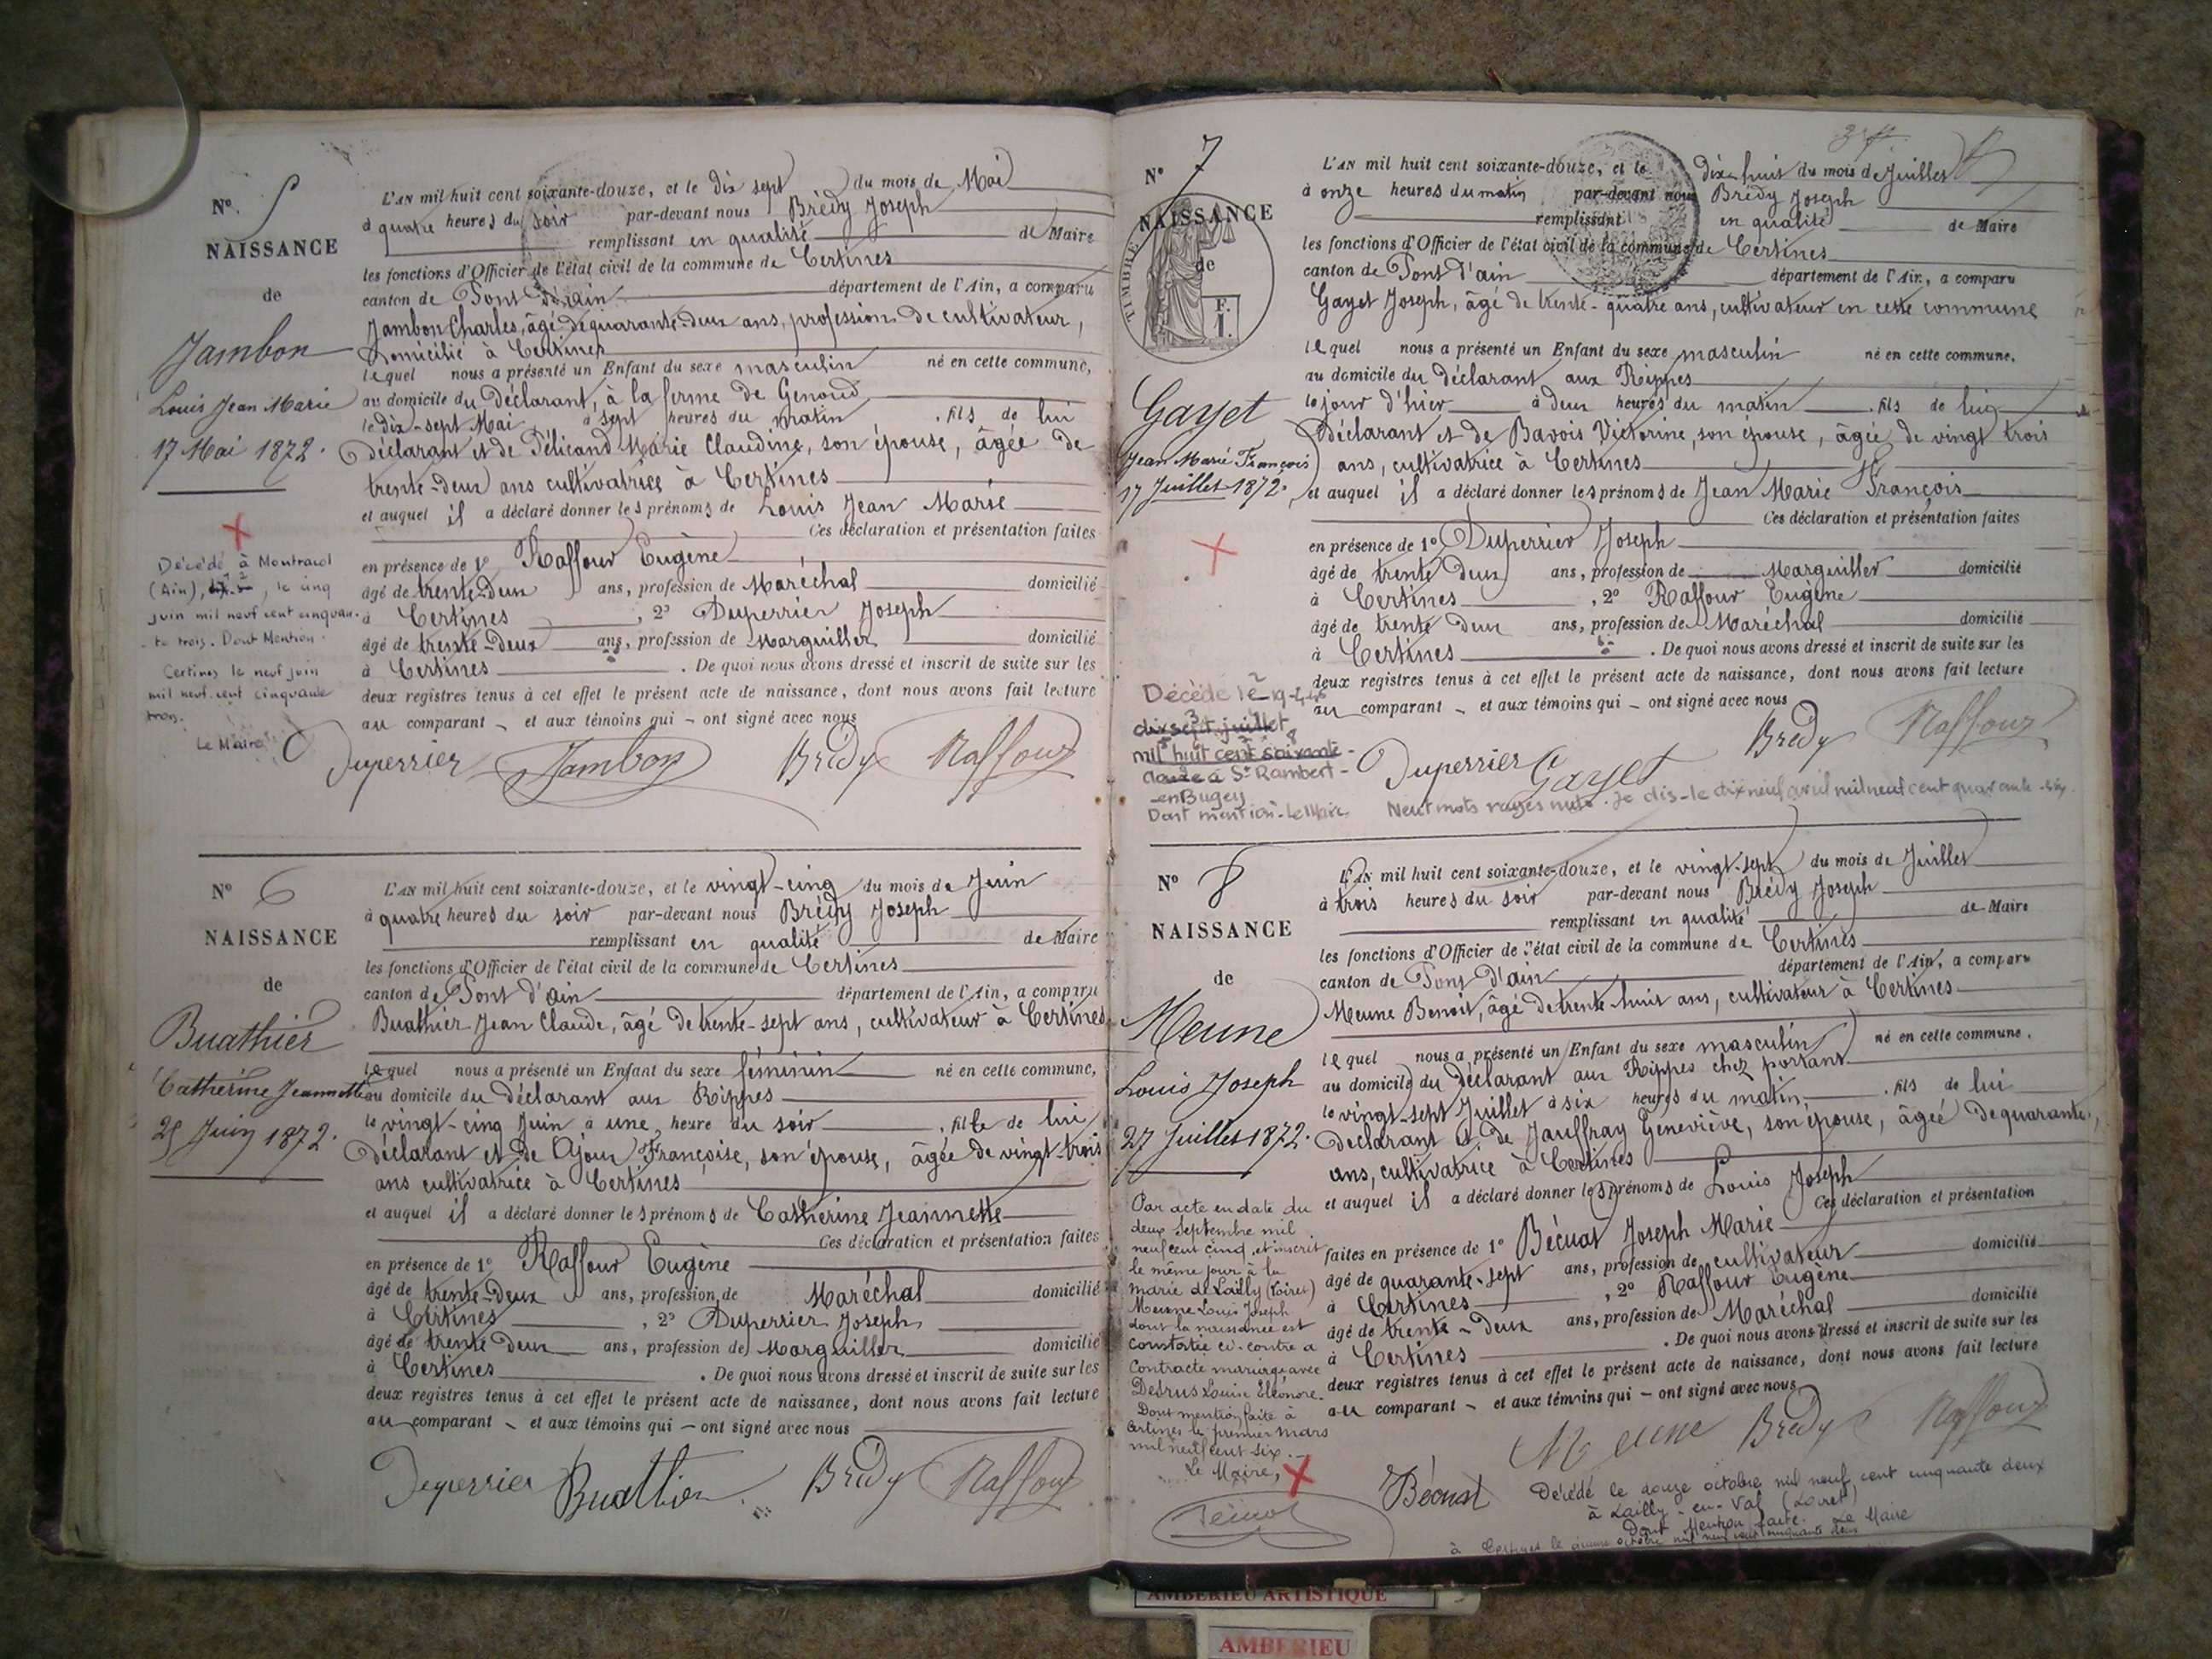 N° 5
NAISSANCE
de
Jambon
Louis Jean Marie
17 Mai 1872.
Décédé à Montracol
(Ain), le cinq
juin mil neuf cent cinquan-
te trois. Dont Mention.
Certines le neuf juin
mil neuf cent cinquante
trois.
Le Maire
L'AN mil huit cent soixante-douze, et le dix sept du mois de Mai
à quatre heures du soir par-devant nous Brédy Joseph
remplissant en qualité de Maire
les fonctions d'Officier de l'état civil de la commune de Certines
canton de Pont d'ain département de l'Ain, a comparu
Jambon Charles, âgé de quarante-deux ans, profession de cultivateur,
domicilié à Certines
lequel nous a présenté un Enfant du sexe masculin né en cette commune,
au domicile du déclarant, à la ferme de Genoud
le dix-sept Mai à sept heures du matin, fils de lui
déclarant et de Pélicand Marie Claudine, son épouse, âgée de
trente-deux ans cultivatrice à Certines
et auquel il a déclaré donner les prénoms de Louis Jean Marie
Ces déclaration et présentation faites
en présence de 1° Raffour Eugène
âgé de trente-deux ans, profession de Maréchal domicilié
à Certines, 2° Duperrier Joseph
âgé de trente-deux ans, profession de Marguiller domicilié
à Certines. De quoi nous avons dressé et inscrit de suite sur les
deux registres tenus à cet effet le présent acte de naissance, dont nous avons fait lecture
au comparant - et aux témoins qui - ont signé avec nous
Duperrier Jambon Brédy Raffour
N° 6
NAISSANCE
de
Buathier
Catherine Jeannette
25 Juin 1872.
L'AN mil huit cent soixante-douze, et le vingt-cinq du mois de Juin
à quatre heures du soir par-devant nous Brédy Joseph
remplissant en qualité de Maire
les fonctions d'Officier de l'état civil de la commune de Certines
canton de Pont d'ain département de l'Ain, a comparu
Buathier Jean Claude, âgé de trente-sept ans, cultivateur à Certines
lequel nous a présenté un Enfant du sexe féminin né en cette commune,
au domicile du déclarant aux Rippes
le vingt-cinq Juin à une heure du soir, fille de lui
déclarant et de Ajoux Françoise, son épouse, âgée de vingt-trois
ans cultivatrice à Certines
et auquel il a déclaré donner les prénoms de Catherine Jeannette
Ces déclaration et présentation faites
en présence de 1° Raffour Eugène
âgé de trente-deux ans, profession de Maréchal domicilié
à Certines, 2° Duperrier Joseph
âgé de trente deux ans, profession de Marguiller domicilié
à Certines. De quoi nous avons dressé et inscrit de suite sur les
deux registres tenus à cet effet le présent acte de naissance, dont nous avons fait lecture
au comparant - et aux témoins qui - ont signé avec nous
Duperrier Buathier Brédy Raffour
N° 7
NAISSANCE
de
TIMBRE
F.
1.
Gayet
Jean Marie François
17 Juillet 1872.
Décédé le 19-4-46
dix sept juillet
mil huit cent soixante-
douze à St Rambert-
en Bugey
Dont mention - Le Maire
L'AN mil huit cent soixante-douze, et le dix-huit du mois de Juillet
à onze heures du matin par-devant nous Brédy Joseph
remplissant en qualité de Maire
les fonctions d'Officier de l'état civil de la commune de Certines
canton de Pont d'ain département de l'Ain, a comparu
Gayet Joseph, âgé de trente-quatre ans, cultivateur en cette commune
lequel nous a présenté un Enfant du sexe masculin né en cette commune,
au domicile du déclarant aux Rippes
le jour d'hier à deux heures du matin, fils de lui
déclarant et de Bavois Victorine, son épouse, âgée de vingt trois
ans, cultivatrice à Certines
et auquel il a déclaré donner les prénoms de Jean Marie François
Ces déclaration et présentation faites
en présence de 1° Duperrier Joseph
âgé de trente deux ans, profession de Marguiller domicilié
à Certines, 2° Raffour Eugène
âgé de trente deux ans, profession de Maréchal domicilié
à Certines. De quoi nous avons dressé et inscrit de suite sur les
deux registres tenus à cet effet le présent acte de naissance, dont nous avons fait lecture
au comparant - et aux témoins qui - ont signé avec nous
Duperrier Gayet Brédy Raffour
Neuf mots rayés nuls. Je dis - le dix neuf avril mil neuf cent quarante-six
N° 8
NAISSANCE
de
Meune
Louis Joseph
27 Juillet 1872.
Par acte en date du
deux Septembre mil
neuf cent cinq, et inscrit
le même jour à la
mairie de Lailly (Loiret)
Meune Louis Joseph
dont la naissance est
constatée ci-contre a
contracté mariage avec
Louise Eléonore.
Dont mention faite à
Certines le premier Mars
mil neuf cent six.
Le Maire,
L'AN mil huit cent soixante-douze, et le vingt-sept du mois de Juillet
à trois heures du soir par-devant nous Brédy Joseph
remplissant en qualité de Maire
les fonctions d'Officier de l'état civil de la commune de Certines
canton de Pont d'ain département de l'Ain, a comparu
Meune Benoit, âgé de trente-huit ans, cultivateur à Certines
lequel nous a présenté un Enfant du sexe masculin né en cette commune,
au domicile du déclarant aux Rippes chez portant
le vingt-sept Juillet à six heures du matin, fils de lui
déclarant et de Jauffray Geneviève, son épouse, âgée de quarante
ans, cultivatrice à Certines
et auquel il a déclaré donner les prénoms de Louis Joseph
Ces déclaration et présentation
faites en présence de 1° Bécuat Joseph Marie
âgé de quarante-sept ans, profession de cultivateur domicilié
à Certines, 2° Raffour Eugène
âgé de trente-deux ans, profession de Maréchal domicilié
à Certines. De quoi nous avons dressé et inscrit de suite sur les
deux registres tenus à cet effet le présent acte de naissance, dont nous avons fait lecture
au comparant - et aux témoins qui - ont signé avec nous
Meune Brédy Raffour
Bécuat
Décédé le douze octobre mil neuf cent cinquante deux
à Lailly-en-Val (Loiret)
Dont Mention faite. Le Maire
à Certines le octobre mil neuf cent cinquante deux
AMBERIEU ARTISTIQUE
AMBERIEU